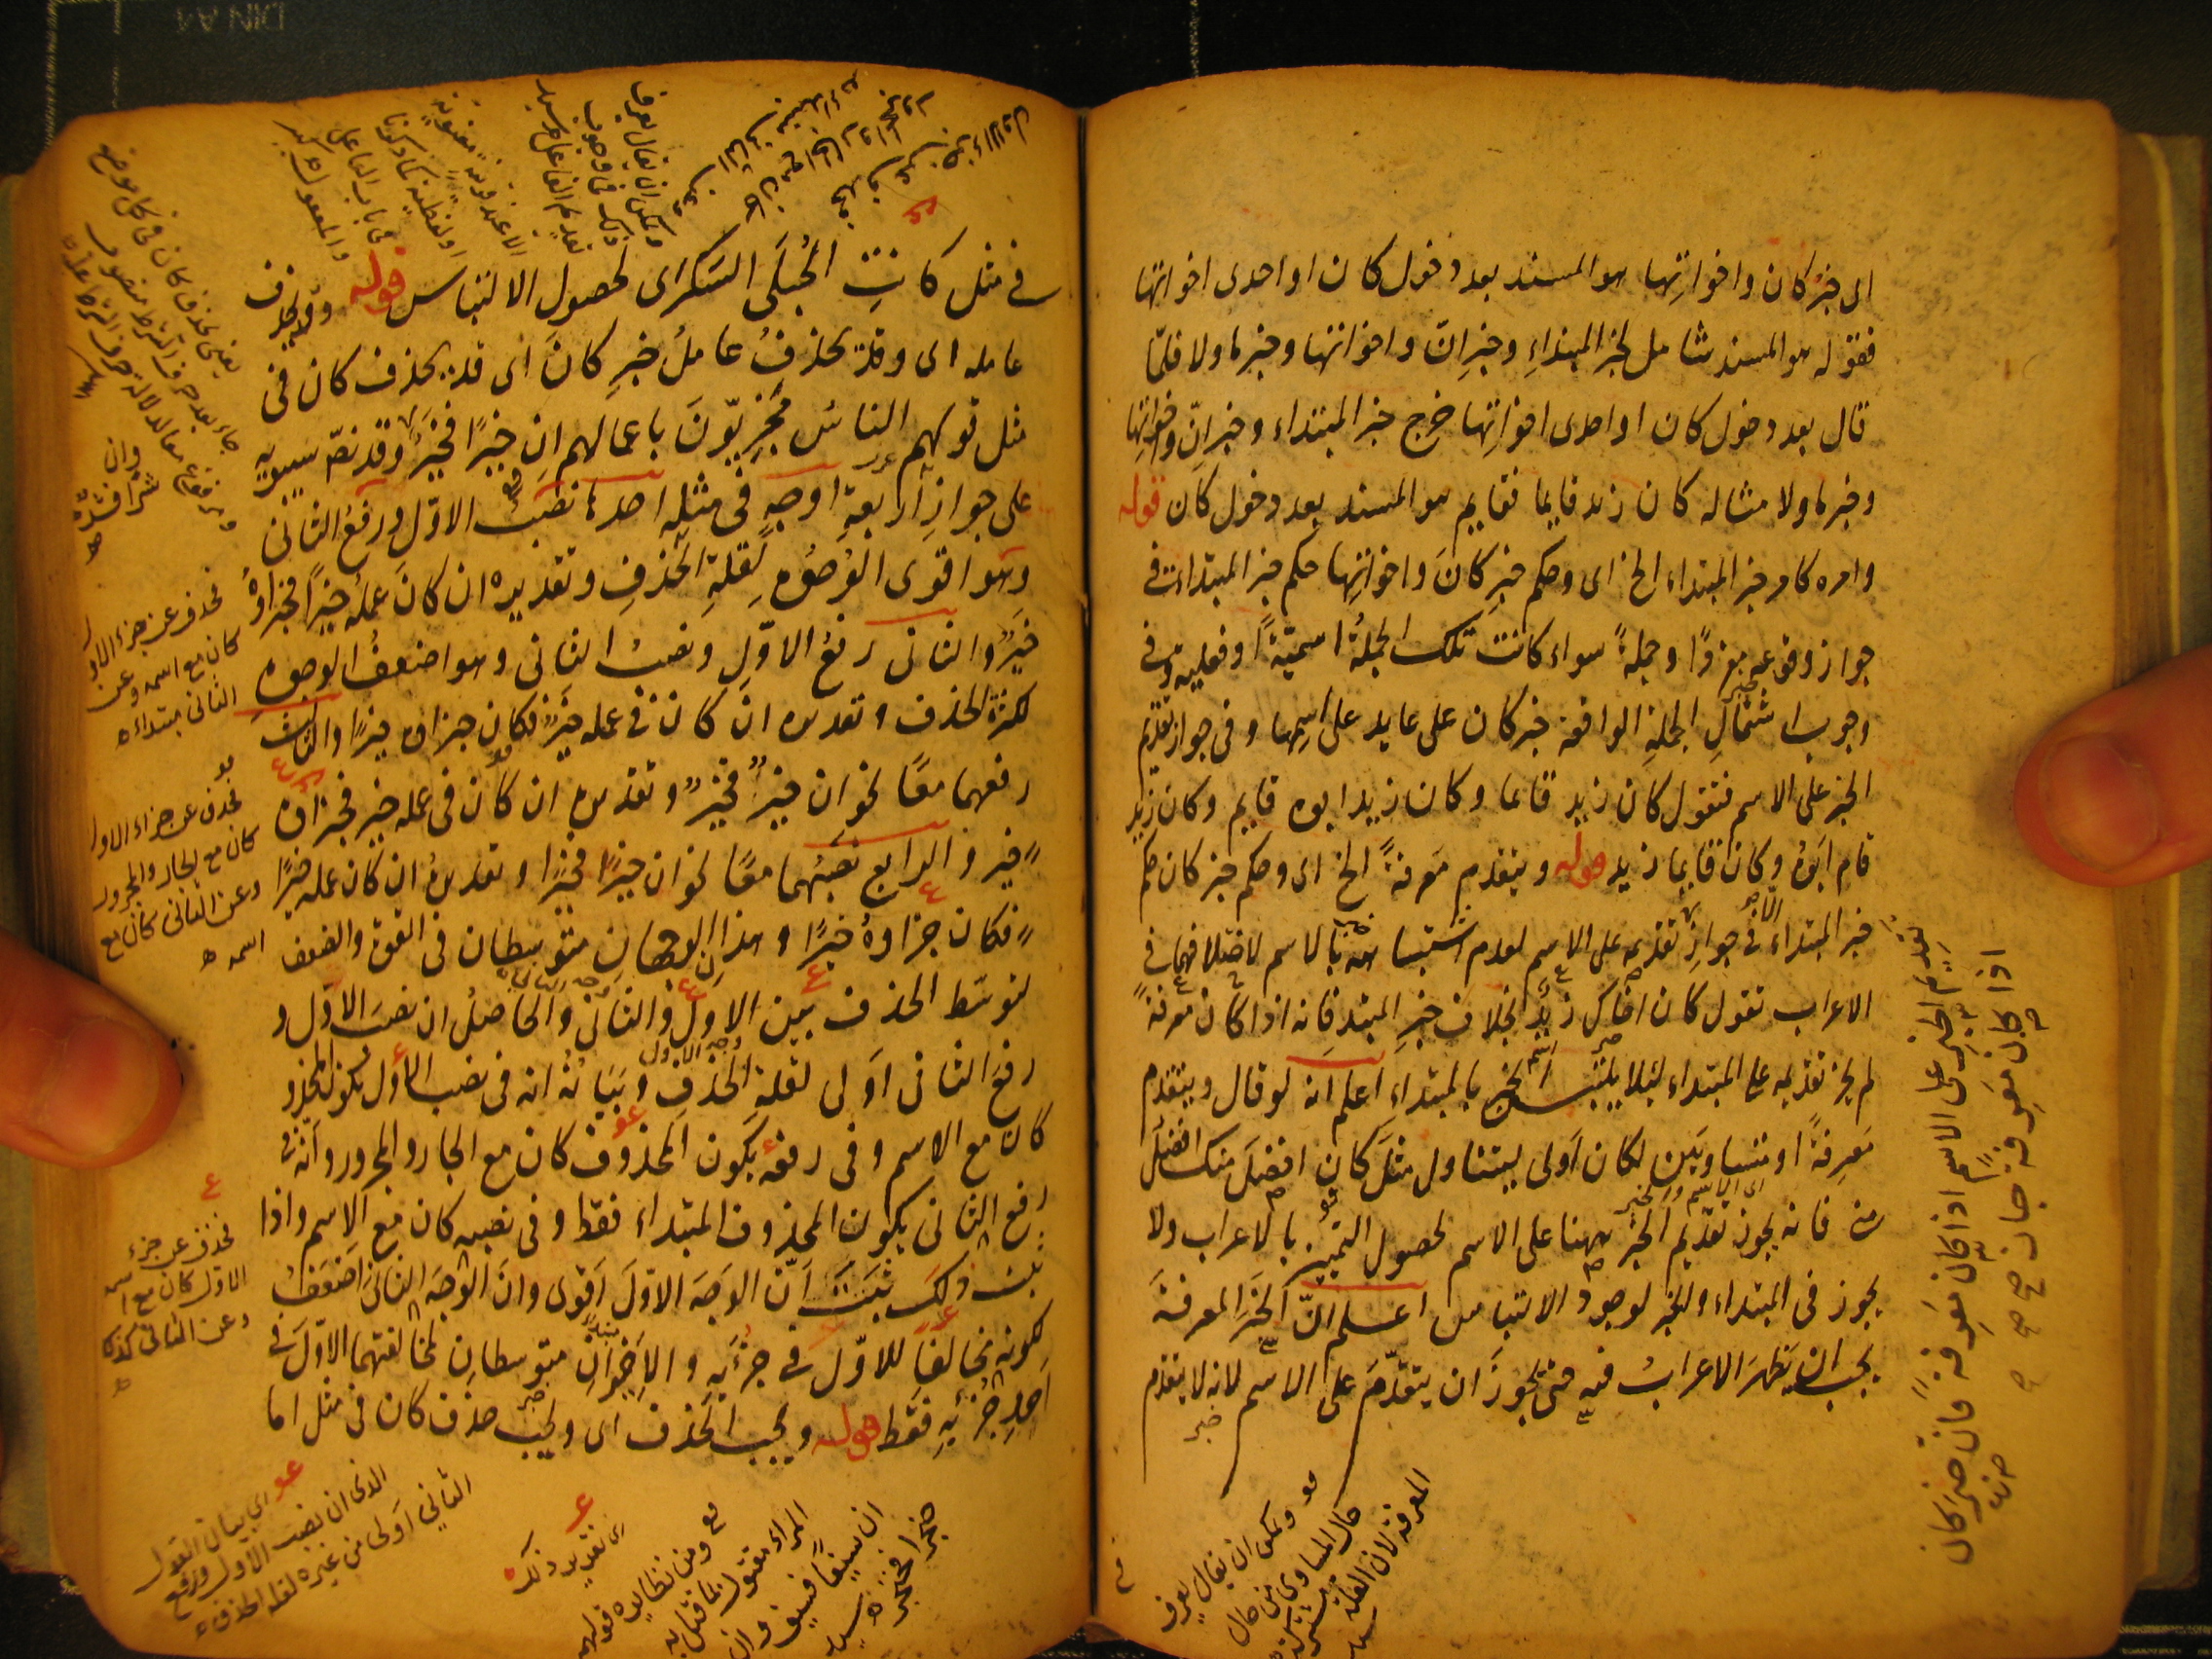 اى خبر كان واخواتها هو المسند بعد دخول كان او احدى اخواتها
فقوله هو المسند شامل لخبر المبتداءِ وخبرِ انّ واخواتها وخبر ما ولا فلمّا
قال بعد دخول كان او احدى اخواتِها خرج خبر المبتداء وخبر انّ واخواتِها
وخبر ما ولا مثاله كان زيد قايما فقايم هو المسند بعد دخول كان قوله
وامره كامر خبر المبتداء الخ اى وحكم خبرِ كانَ واخواتِها حكم خبر المبتداء فى
جواز وقوعه مفردًا وجملةً سواء كانت تلك الجملةُ اسميّةً او فعليه وفى
وجوب اشتمالِ الجملةِ الواقعة خبر كان على عايد على اسمِها وفى جواز تقديم
الخبر على الاسم فتقول كان زيد قائما وكان زيد ابوه قايم وكان زيد
قام ابوهُ وكان قايما زيد قوله ويتقدم معرفةً الخ اى وحكم خبر كان حكم
خبر المبتداء فى جوازِ تقديمه على الاسم لعدم اشتباهه بالاسم لاختلافهما فى
الاعراب تقول كان اخاك زيدٌ بخلاف خبرِ المبتدا فانه اذا كان معرفةً
لم يجز تقديمه على المبتداء لئلا يلتبس الخبر بالمبتداءِ اعلم انه لو قال ويتقدم
معرفةً او متساويَين لكان اَولى ليتناول مثلَ كان افضلَ منك افضلُ
منى فانه يجوز تقديم الخبر ههنا على الاسم لحصول التمييز بالاعراب ولا
يجوز فى المبتداء والخبر لوجود الالتباس اعلم انّ الخبرَ المعرفةَ
يجب ان يَظهرَ الاعرابُ فيه حتى يجوزَ ان يتقدّمَ على الاسم لانه لا يتقدم
تقديم الخبر على الاسم اذا كان مَعرِفةً فانّ خبر كان
اذا كان مَعرِفةً جاز
ويمكن ان يقال يعرف
حال المتساوى من حال
المعرفة لان العلة
فى مثل كانتِ الحُبلَى السَكرَى لحصول الالتباس قوله وقد يحذف
عامله اى وقد يحذفُ عاملُ خبرِ كانَ اى قد يحذف كان فى
مثل قولهم الناسُ مَجزِيّونَ باعمالهم ان خيرًا فخيرٌ وقد نصّ سيبويه
على جوازِ اربعةِ اوجهٍ فى مثلِه احدها نصبُ الاوّل ورفعُ الثانى
وهو اقوى الوُجُوهِ لِقلةِ الحذفِ وتقديره ان كانَ عملُه خيرًا فجزاؤهُ
خيرٌ والثانى رفعُ الاوّلِ ونصبُ الثانى وهو اضعفُ الوجوهِ
لكثرة الحذف وتقديره ان كان فى عمله خيرٌ فكان جزاؤه خيرًا والثالث
رفعهما معًا نحو ان خيرٌ فخيرٌ وتقديره ان كان فى عمله خير فجزاؤه
خير والرابع نصبُهما معًا نحو ان خيرًا فخيرًا وتقديرهُ ان كان عمله خيرًا
فكان جزاؤهُ خيرًا وهذا الوجهان متوسطان فى القوة والضعف
لتوسّط الحذف بين الاول والثانى والحاصلُ ان نصبَ الاوّل و
رفعَ الثانى اَولى لقلة الحذفِ وبَيَانُهُ انه فى نصب الاول يكون المحذوف
كان مع الاسم وفى رفعه يكون المحذوف كان مع الجار والمجرور وانّه فى
رفع الثانى يكون المحذوف المبتداء فقط وفى نصبِه كان مع الاسم واذا
ثبت ذلك ثَبَتَ انّ الوَجهَ الاوّلَ اَقوى وانَ الوجهَ الثانى اضعَفُ
لكونه مخالفا للاوّل فى جزئَيهِ والاَخِيرانِ متوسطانِ لمخالفتهما الاوّلَ فى
اَحدِ جُزئَيهِ فقط قوله ويجب الحذف اى ويجب حذف كان فى مثل اما
ويمكن ان يقال يعرف
ذلك فى وجوب
تقديم الفاعل
كما ذكرنا
فى باب الفاعل
والمفعول
يعنى يحذف كان فى كل موضع
جاء بعد حرف الشرط منصوب
وان
شرًّا فشرٌّ
فحذف عن جزء الاول
كان مع اسمه وعن
الثانى مبتداء
فحذف عن جزاء الاول
كان مع الجار والمجرور
وعن الثانى كان مع
اسمه
فحذف عن جزء
الاوّل كان مع اسمه
وعن الثانى كذلك
اى بيان القول
الذى ان نصب الاول ورفع
الثانى اَولى من غيره لقلة الحذف
اى تقدير ذلك
ومن نظايره قولهم
المراء مقتول بما قتل به
ان سيفًا فسيف وان
خنجرا فخنجر